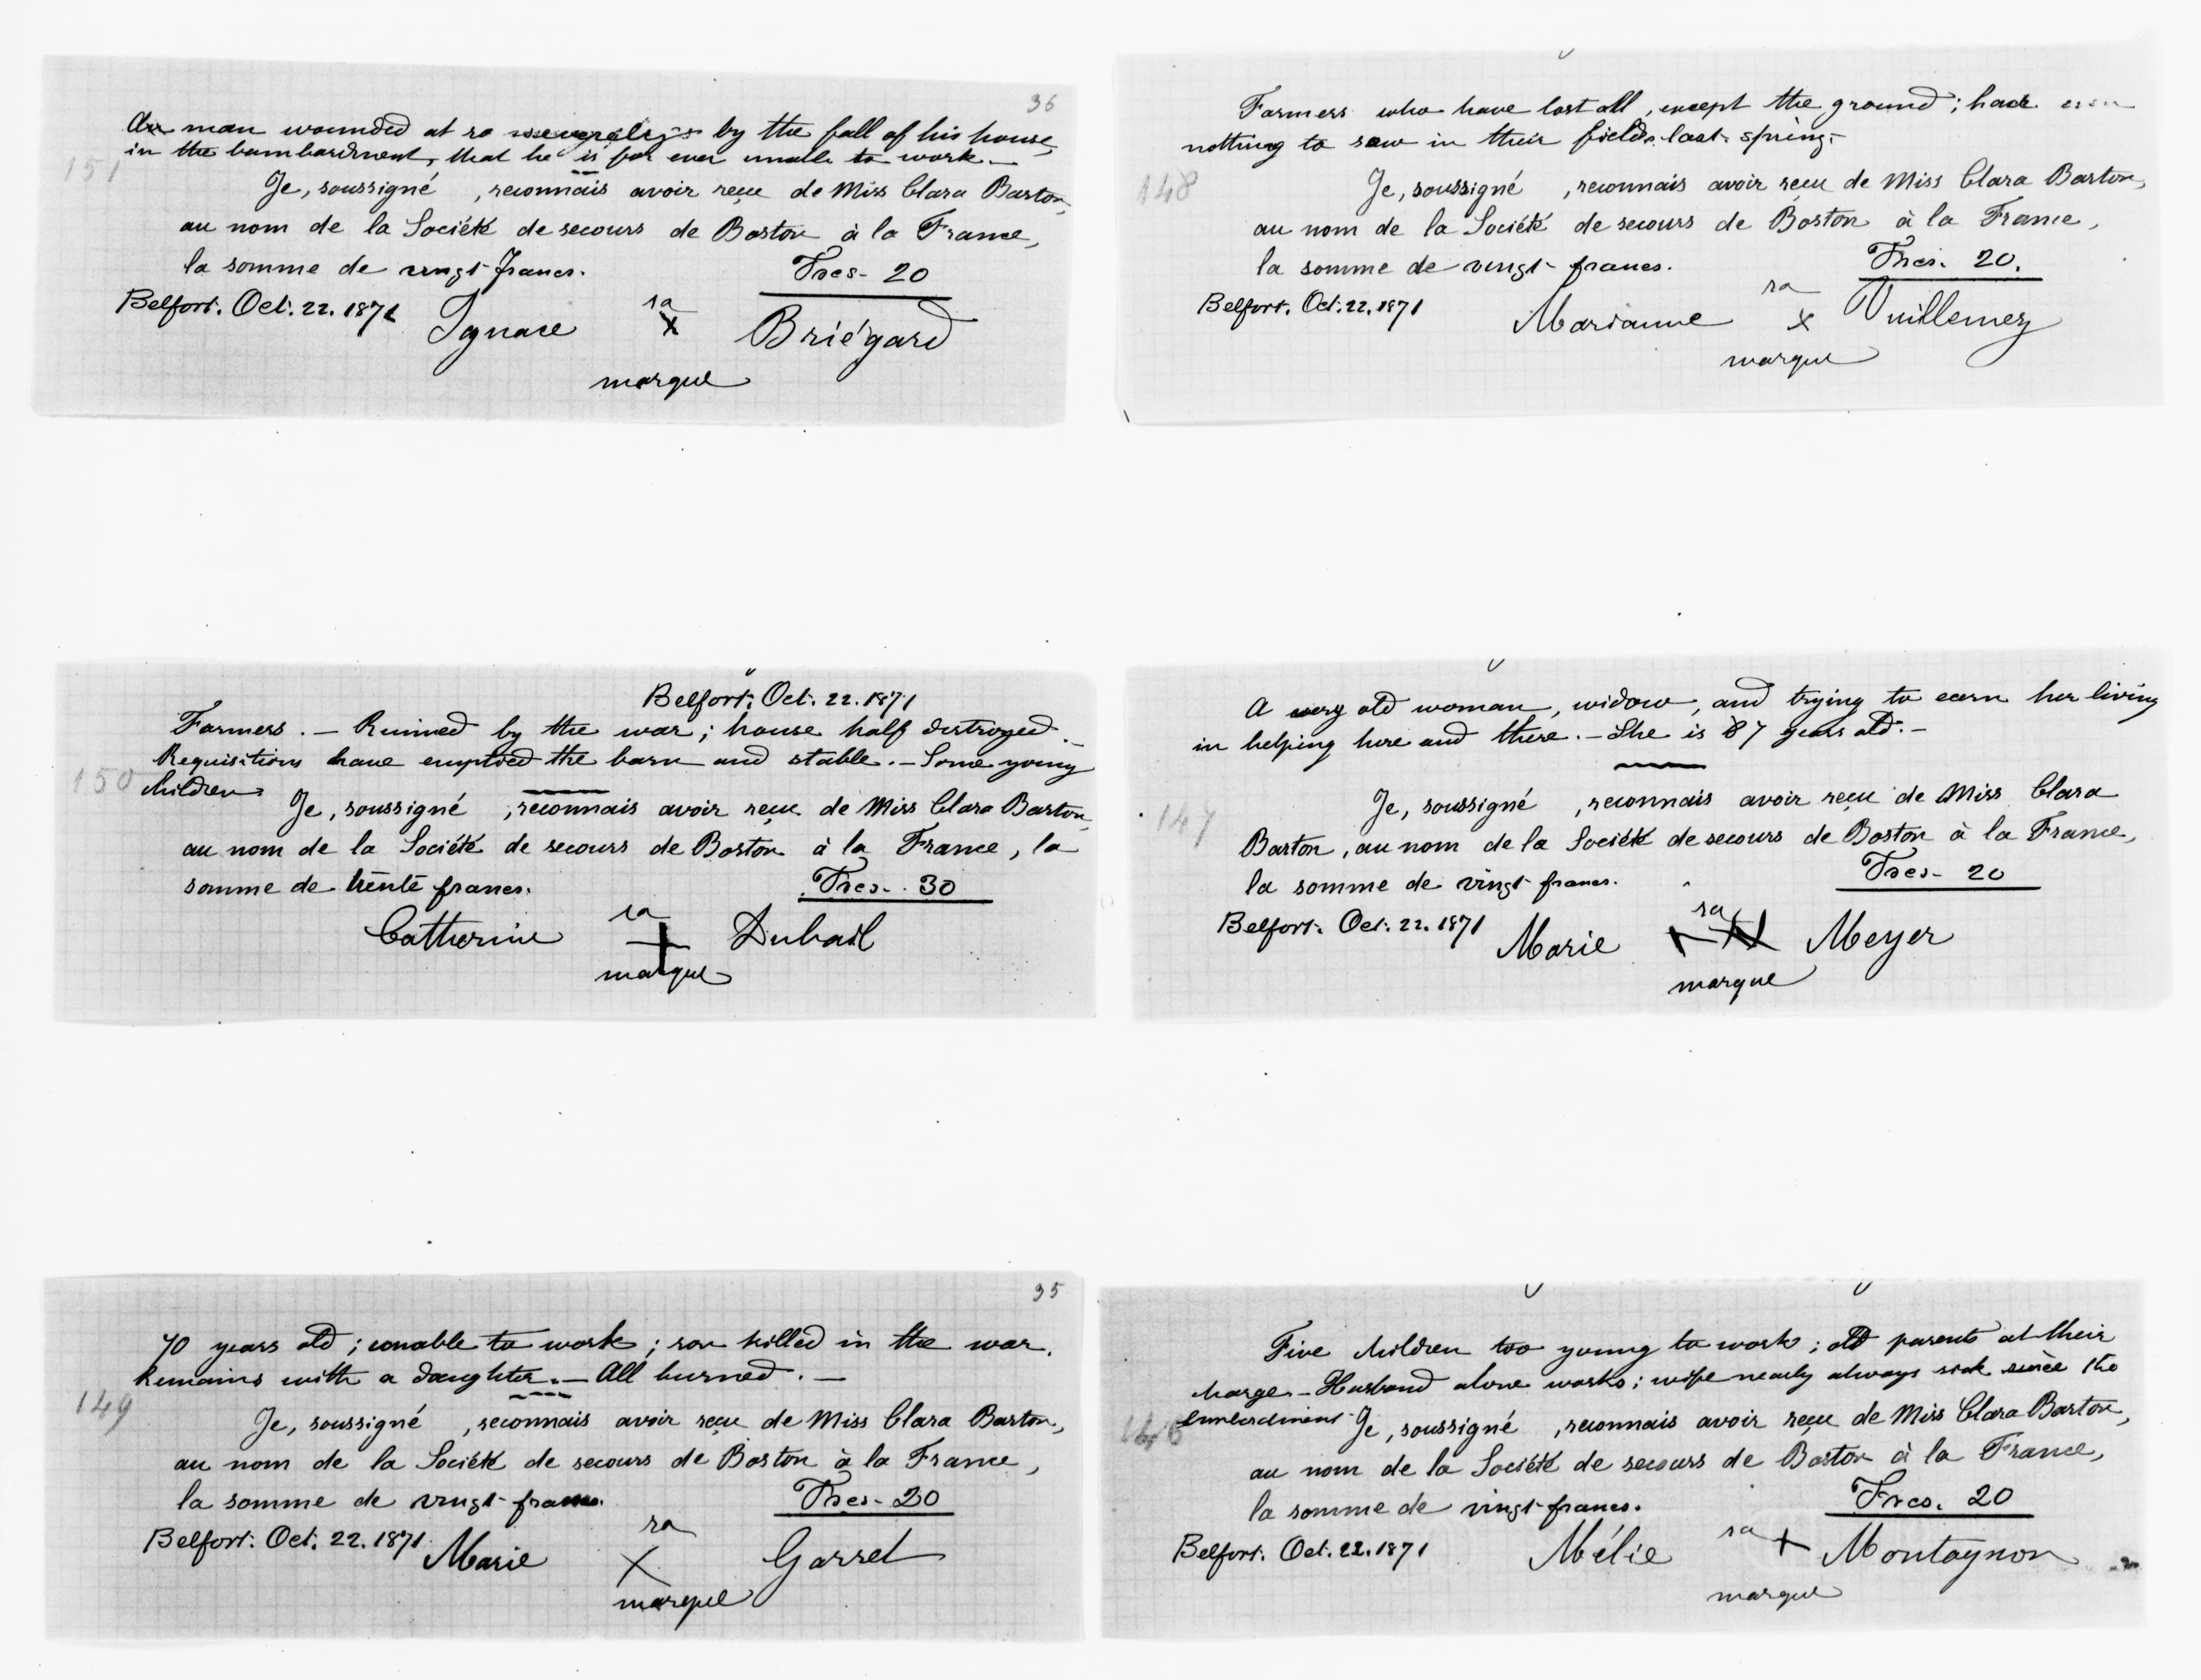 36
man wounded at so by the fall of his house,
in the bombardment, that he is for ever unable to work. —
151
Je, soussigné , reconnais avoir reçu de Miss Clara Barton,
au nom de la Société de secours de Boston à la France,
la somme de vingt francs. Frcs - 20
Belfort. Oct. 22. 1871 Ignace sa x Briégard
marque
Belfort. Oct. 22. 1871
Farmers. — Ruined by the war; house half destroyed. —
Requisitions have emptied the barn and stable. — Some young
150 children
Je, soussigné , reconnais avoir reçu de Miss Clara Barton,
au nom de la Société de secours de Boston à la France, la
somme de trente francs. Frcs - 30
Catherine sa + Dubail
marque
35
70 years old; unable to work; son killed in the war.
Remains with a daughter. — All burned. —
149
Je, soussigné , reconnais avoir reçu de Miss Clara Barton,
au nom de la Société de secours de Boston à la France,
la somme de vingt francs. Frcs - 20
Belfort. Oct. 22. 1871 Marie sa x Garret
marque
Farmers who have lost all, except the ground; had even
nothing to sow in their fields last spring. -
148
Je, soussigné , reconnais avoir reçu de Miss Clara Barton,
au nom de la Société de secours de Boston à la France,
la somme de vingt francs. Frcs. 20.
Belfort. Oct. 22. 1871 Marianne sa x Vuillemez
marque
A very old woman, widow, and trying to earn her living
in helping here and there. — She is 87 years old. —
147
Je, soussigné , reconnais avoir reçu de Miss Clara
Barton, au nom de la Société de secours de Boston à la France,
la somme de vingt francs. Frcs - 20
Belfort. Oct. 22. 1871 Marie sa Meyer
marque
Five children too young to work; old parents at their
charge. — Husband alone works; wife nearly always sick since the
bombardment
146
Je, soussigné , reconnais avoir reçu de Miss Clara Barton,
au nom de la Société de secours de Boston à la France,
la somme de vingt francs. Frcs. 20
Belfort. Oct. 22. 1871 Mélie sa + Montagnon
marque